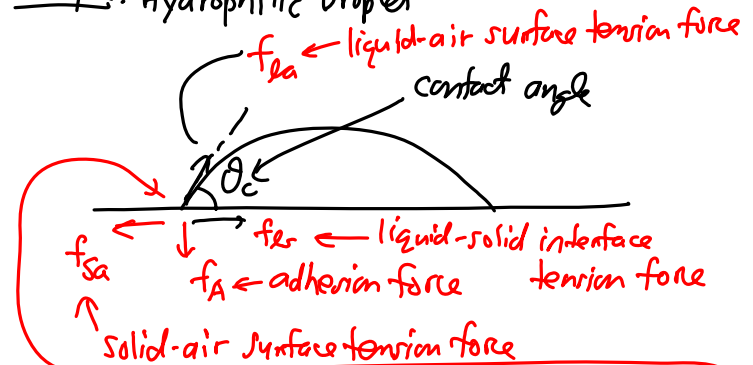 Hydrophilic Droplet
fla ← liquid-air surface tension force
contact angle
θc
fsa
fls ← liquid-solid interface tension force
fA ← adhesion force
solid-air surface tension force